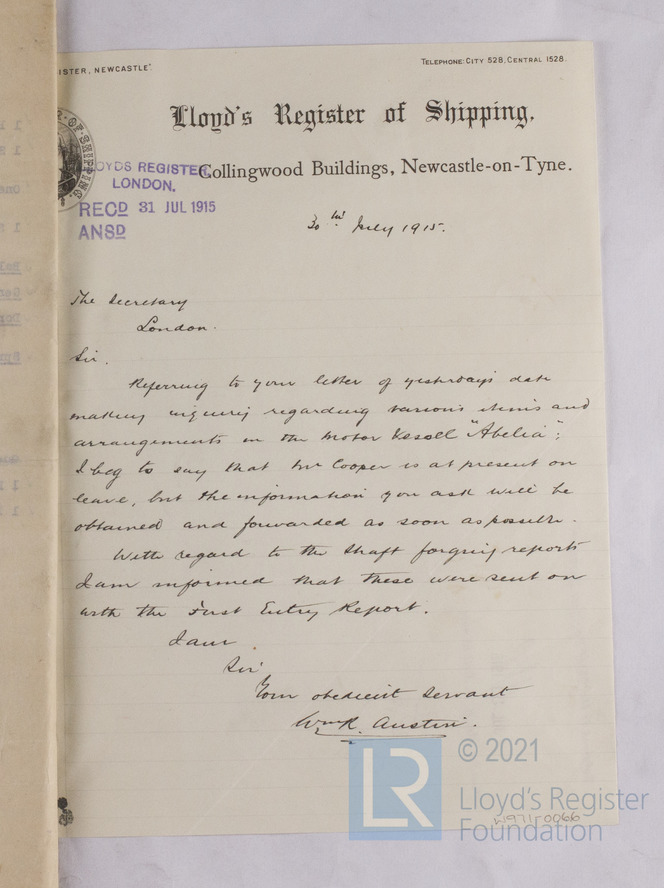 ISTER, NEWCASTLE".
TELEPHONE: CITY 528, CENTRAL 1528.
Lloyd's Register of Shipping.
Collingwood Buildings, Newcastle-on-Tyne.
LOYDS REGISTER,
LONDON.
RECD 31 JUL 1915
ANSD
30th July 1915.
The Secretary
London.
Sir.
Referring to your letter of yesterday's date
making inquiry regarding various items and
arrangements in the Motor Vessel "Abelia";
I beg to say that Mr Cooper is at present on
leave, but the information you ask will be
obtained and forwarded as soon as possible.
With regard to the shaft forging reports
I am informed that these were sent on
with the First Entry Report.
I am
Sir
Your obedient Servant
Wm R. Austin.
LR
© 2021
Lloyd's Register
Foundation